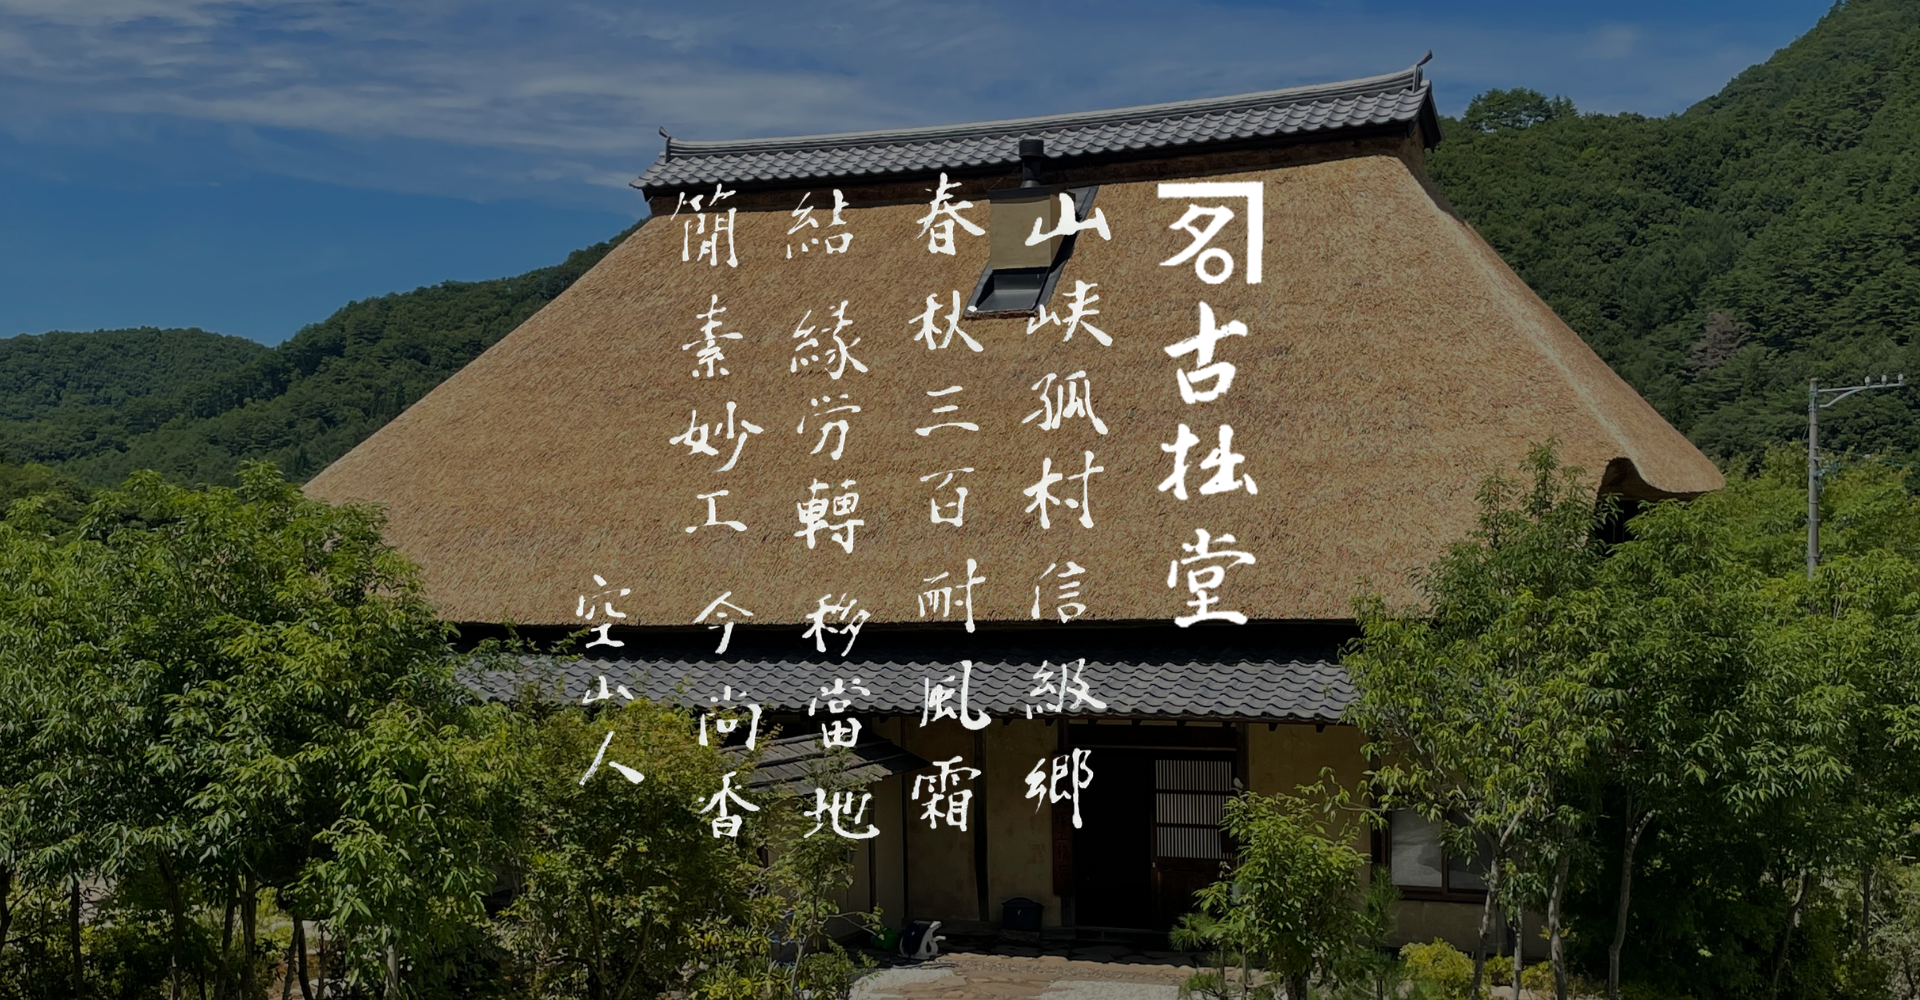 古拙堂
山峡孤村信級郷
春秋三百耐風霜
結縁労轉移當地
簡素妙工今尚香
空山人